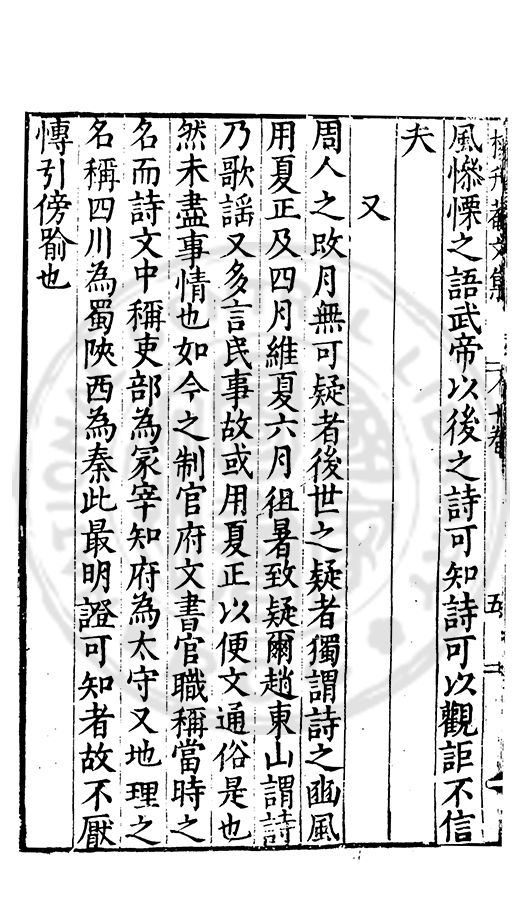 風憯慄之語武帝以後之詩可知詩可以觀詎不信
夫
又
周人之改月無可疑者後世之疑者獨謂詩之豳風
用夏正及四月維夏六月徂暑致疑爾趙東山謂詩
乃歌謡又多言民事故或用夏正以便文通俗是也
然未盡事情也如今之制官府文書官職稱當時之
名而詩文中稱吏部為冡宰知府為太守又地理之
名稱四川為蜀陝西為秦此最明證可知者故不厭
慱引傍喻也